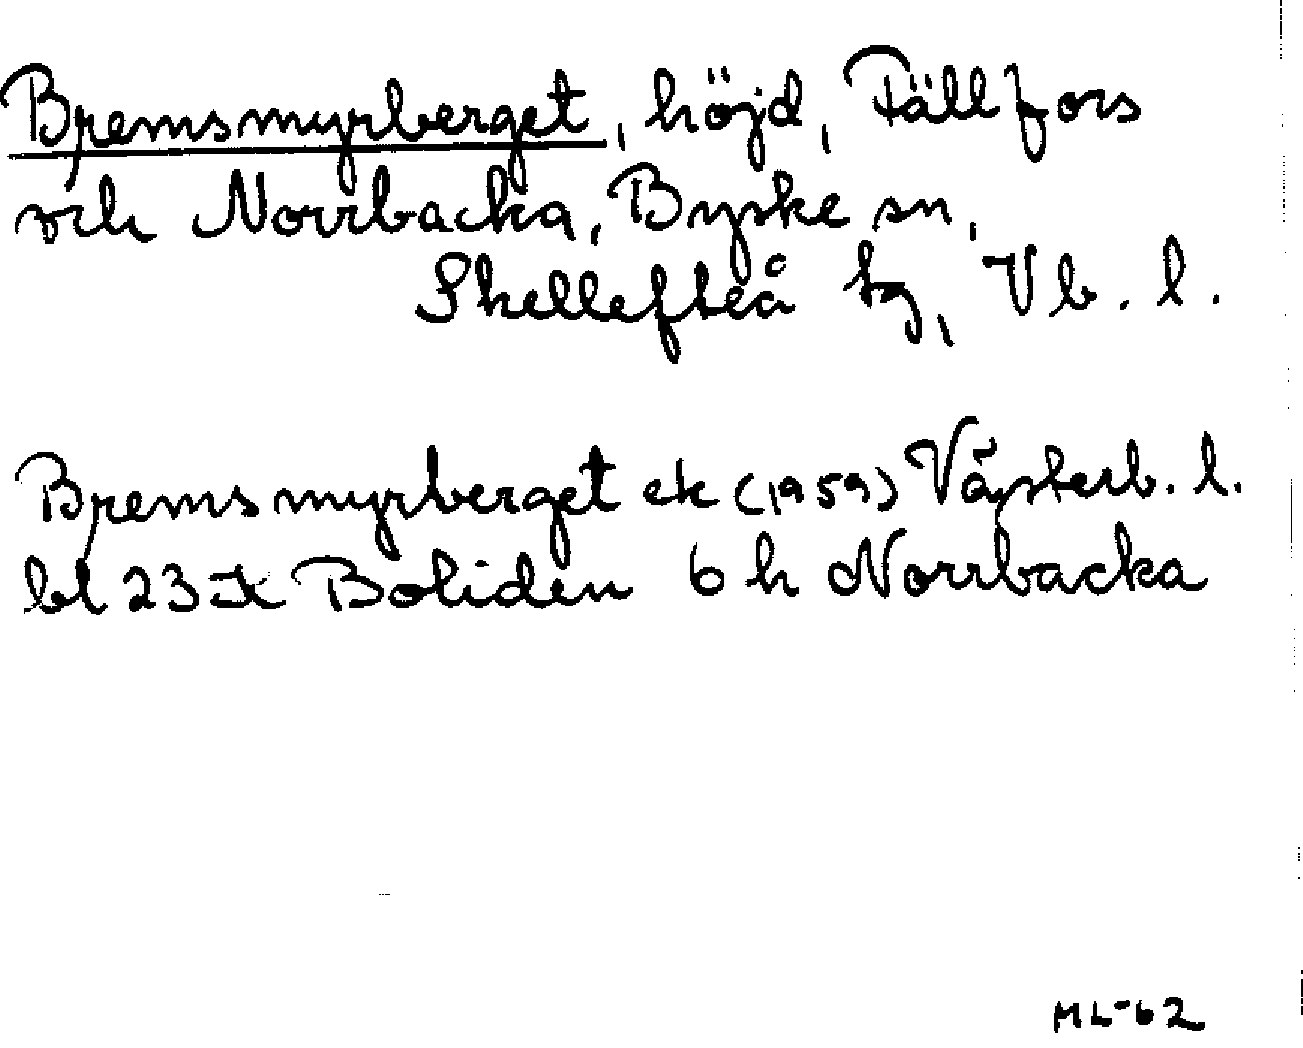 Bremsmyrberget, höjd, Fällfors
och Norrbacka, Byske sn,
Skellefteå tg, Vb. l.
Bremsmyrberget ek (1959) Västerb. l.
bl 23 K Boliden 6 h Norrbacka
ML-62